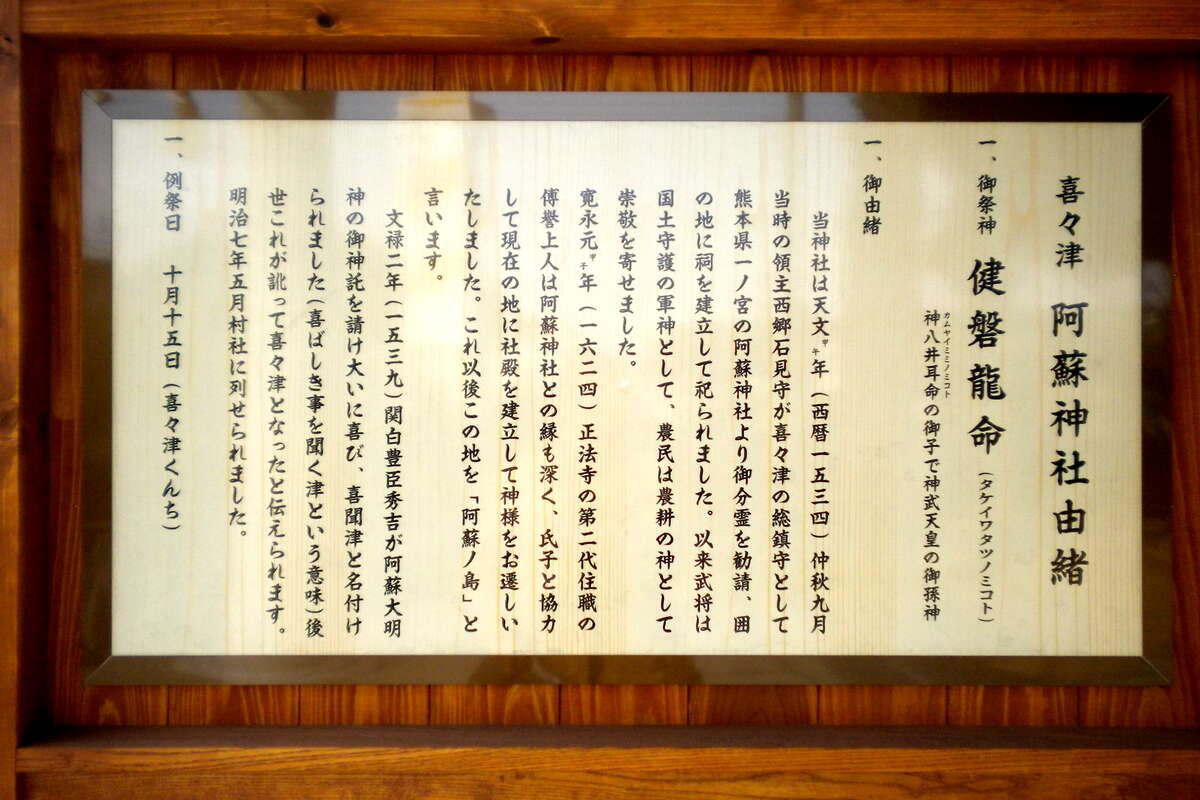 喜々津 阿蘇神社由緒
一、御祭神 健磐龍命 (タケイワタツノミコト)
神八井耳命の御子で神武天皇の御孫神
カムヤイミミノミコト
一、御由緒
当神社は天文甲午年(西暦一五三四)仲秋九月
当時の領主西郷石見守が喜々津の総鎮守として
熊本県一ノ宮の阿蘇神社より御分霊を勧請、囲
の地に祠を建立して祀られました。以来武将は
国土守護の軍神として、農民は農耕の神として
崇敬を寄せました。
寛永元甲子年(一六二四)正法寺の第二代住職の
傅誉上人は阿蘇神社との縁も深く、氏子と協力
して現在の地に社殿を建立して神様をお遷しい
たしました。これ以後この地を「阿蘇ノ島」と
言います。
文禄二年(一五三九)関白豊臣秀吉が阿蘇大明
神の御神託を請け大いに喜び、喜聞津と名付け
られました(喜ばしき事を聞く津という意味)後
世これが訛って喜々津となったと伝えられます。
明治七年五月村社に列せられました。
一、例祭日 十月十五日(喜々津くんち)